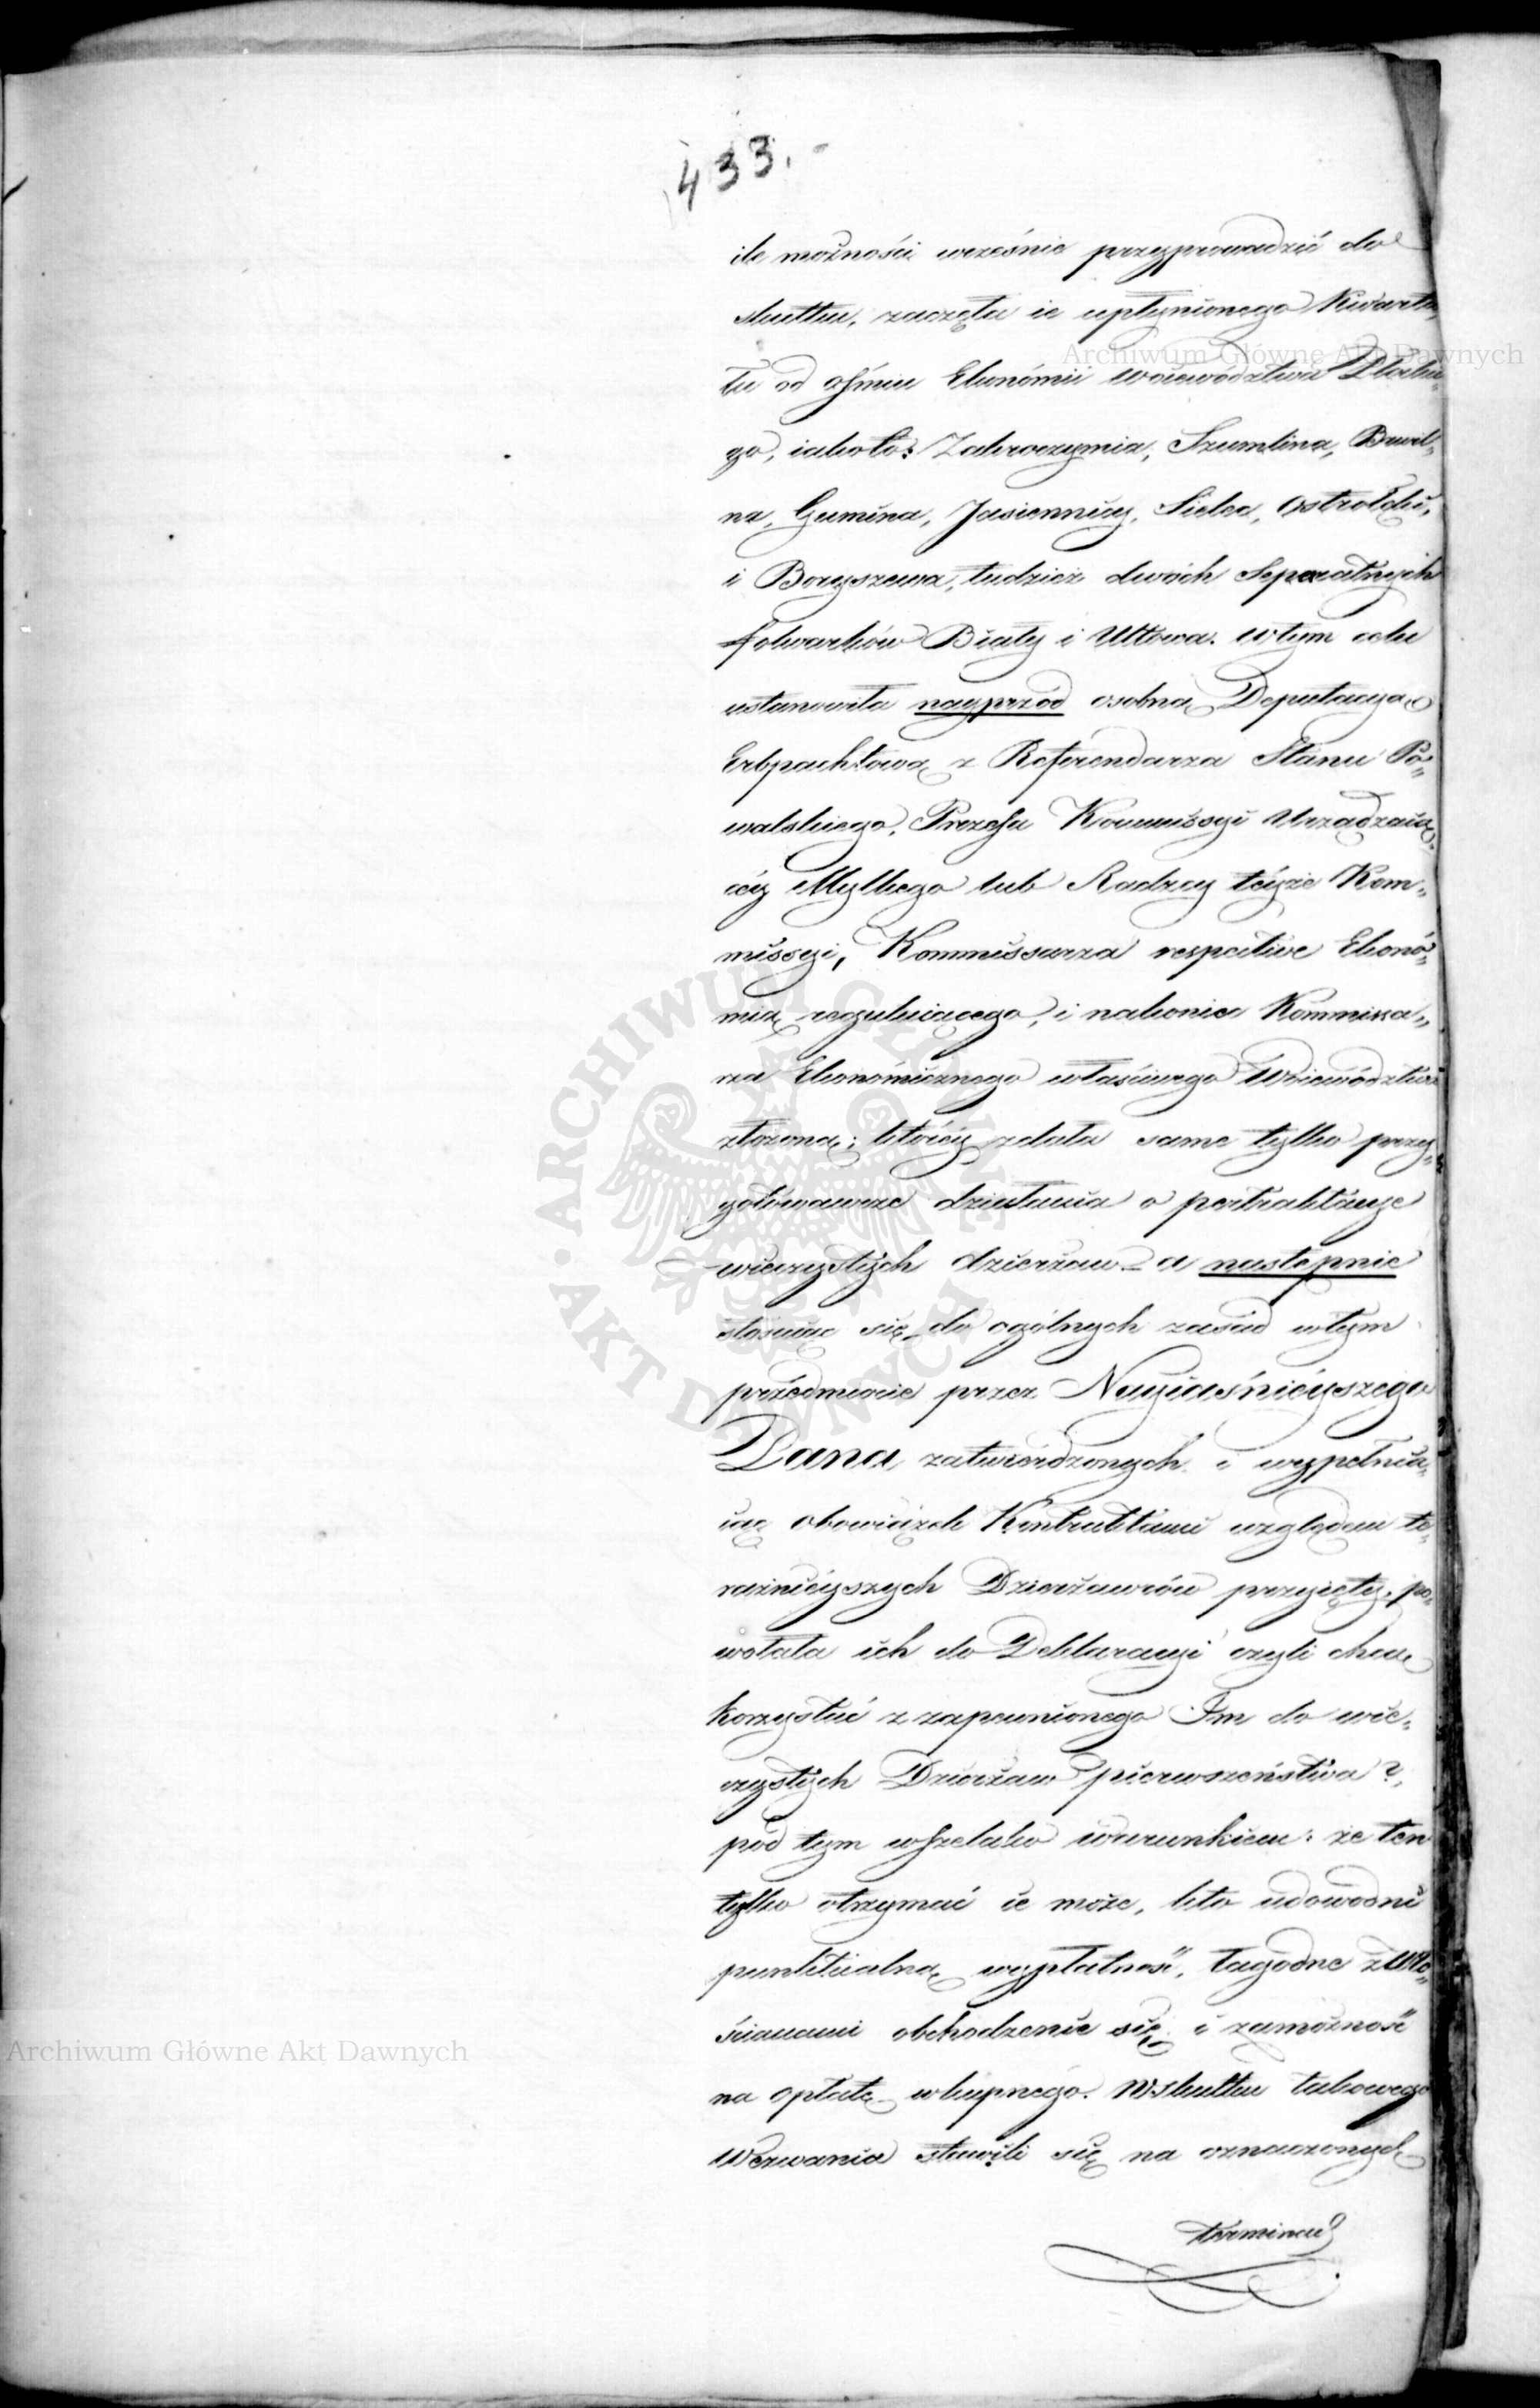 433.-
ile możności wcześnie przyprowadzić do
skutku, zaczęła ie upłynionego Kwarta„
łu od ośmiu Ekonómii woiewództwa Płockie„
go, iakoto: Zakroczymia, Szumlina, Brwil„
na, Gumina, Jasiennicy, Sielca, Ostrołęki,
i Boryszewa, tudzież dwóch Separatnych
folwarków Biały i Uttowa. w tym celu
ustanowiła nayprzód osobną Deputacyą
Erbpachtową z Referendarza Stanu Po„
walskiego, Prezesa Kommissyi Urządzaią„
céy Myllhego lub Radzcy téyże Kom„
missyi, Kommissarza respective Ekonó„
mią reguluiącego, i nakoniec Kommissa„
rza Ekonómicznego właściwego Woiewództwa
złożoną; któréy zdała same tylko przy„
gotowawcze działania o pertraktacye
wieczystych dzierżaw - a następnie
stosuiąc się do ogólnych zasad w tym
przedmiocie przez Nayiaśnieyszego
Pana, zatwierdzonych i wypełnia„
iąc obowiązek Kontraktami względem te„
raźnieyszych Dzierżawców przyięty, po„
wołała ich do Deklaracyi czyli chcą
korzystać z zapewnionego Im do wie„
czystych Dzierżaw pierwszeństwa?,
pod tym wszelako warunkiem: że ten
tylko otrzymać ie może, kto udowodni
punktualną wypłatność, łagodne z Wło„
ścianami obchodzenie się, i zamożność
na opłatę wkupnégo. W skutku takowego
Wezwania stawili się na oznaczonych
terminach
Archiwum Główne Akt Dawnych
Archiwum Główne Akt Dawnych
ARCHIWUM GŁÓWNE AKT DAWNYCH